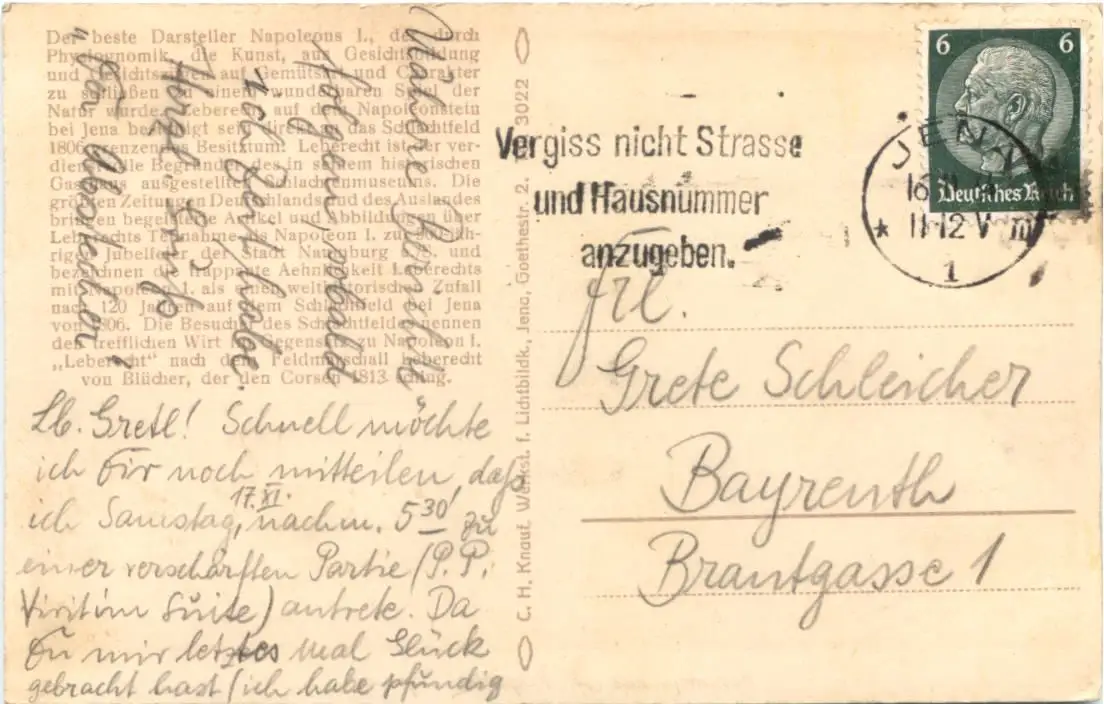 Der beste Darsteller Napoleons I., der durch
Physiognomik, die Kunst, aus Gesichtsbildung
und Gesichtszügen auf Gemütsart und Charakter
zu schließen zu einem wunderbaren Spiel der
Natur wurde. Leberecht, auf dem Napoleonstein
bei Jena bestätigt sein direkt an das Schlachtfeld
1806 grenzendes Besitztum. Leberecht ist der ver-
dienstvolle Begründer des in seinem historischen
Gasthaus ausgestellten Schlachtenmuseums. Die
größten Zeitungen Deutschlands und des Auslandes
bringen begeisterte Artikel und Abbildungen über
Leberechts Teilnahme als Napoleon I. zur 900-jäh-
rigen Jubelfeier der Stadt Naumburg a./S. und
bezeichnen die frappante Aehnlichkeit Leberechts
mit Napoleon I. als einen welthistorischen Zufall
nach 120 Jahren auf dem Schlachtfeld bei Jena
von 1806. Die Besucher des Schlachtfeldes nennen
den trefflichen Wirt im Gegensatz zu Napoleon I.
„Leberecht“ nach dem Feldmarschall Leberecht
von Blücher, der den Corsen 1813 schlug.
Lb. Gretl! Schnell möchte
ich Dir noch mitteilen, daß
ich Samstag, 17. XI. nachm. 5 30 zu
einer verschärften Partie (P.P.
Virit im Suite) antrete. Da
Du mir letztes mal Glück
gebracht hast (ich habe pfundig
C. H. Knauf, Werkst. f. Lichtbildk., Jena, Goethestr. 2. 3022
Vergiss nicht Strasse
und Hausnummer
anzugeben.
6 6
Deutsches Reich
JENA
16
11-12 V
* 1
Frl.
Grete Schleicher
Bayreuth
Brautgasse 1